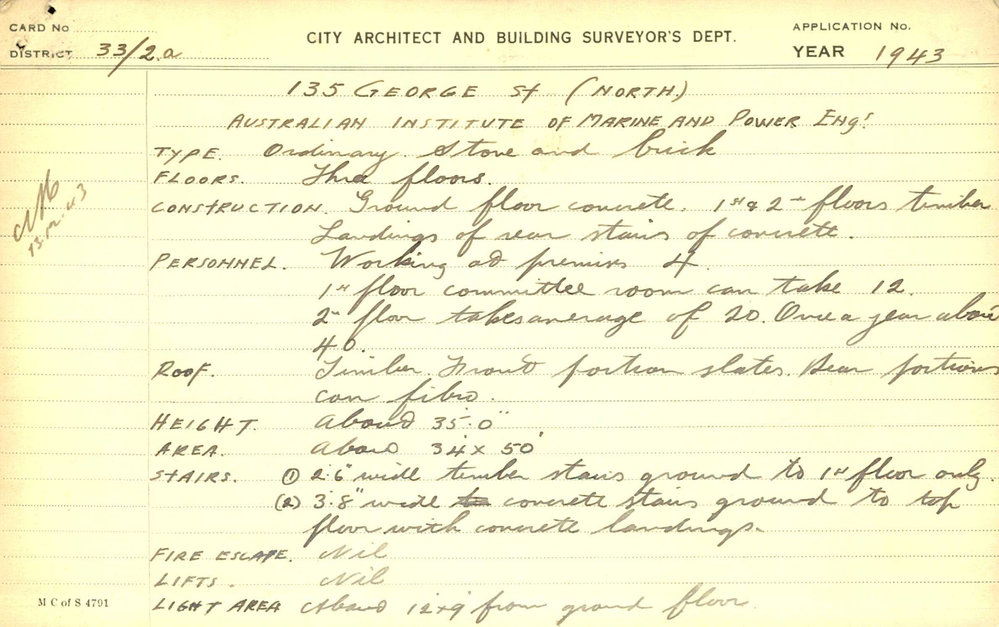 CARD No
DISTRICT 33/2.a
CITY ARCHITECT AND BUILDING SURVEYOR'S DEPT.
APPLICATION No.
YEAR 1943
135 GEORGE St (NORTH.)
AUSTRALIAN INSTITUTE OF MARINE AND POWER ENGrs
TYPE. Ordinary. Stone and brick
FLOORS. Three floors.
CONSTRUCTION. Ground floor concrete. 1st & 2nd floors timber
Landings of rear stairs of concrete.
PERSONNEL. Working at premises 4.
1st floor committee room can take 12.
2nd floor takes average of 20. Once a year about
40.
ROOF. Timber. Front portion slates. Rear portions
fibro.
HEIGHT. About 35'.0"
AREA. About 34' x 50'
STAIRS. (1) 2'.6" wide timber stairs ground to 1st floor only.
(2) 3'.8" wide concrete stairs ground to top
floor with concrete landings.
FIRE ESCAPE. Nil
LIFTS. Nil
LIGHT AREA About 12' x 9' from ground floor.
M C of S 4791